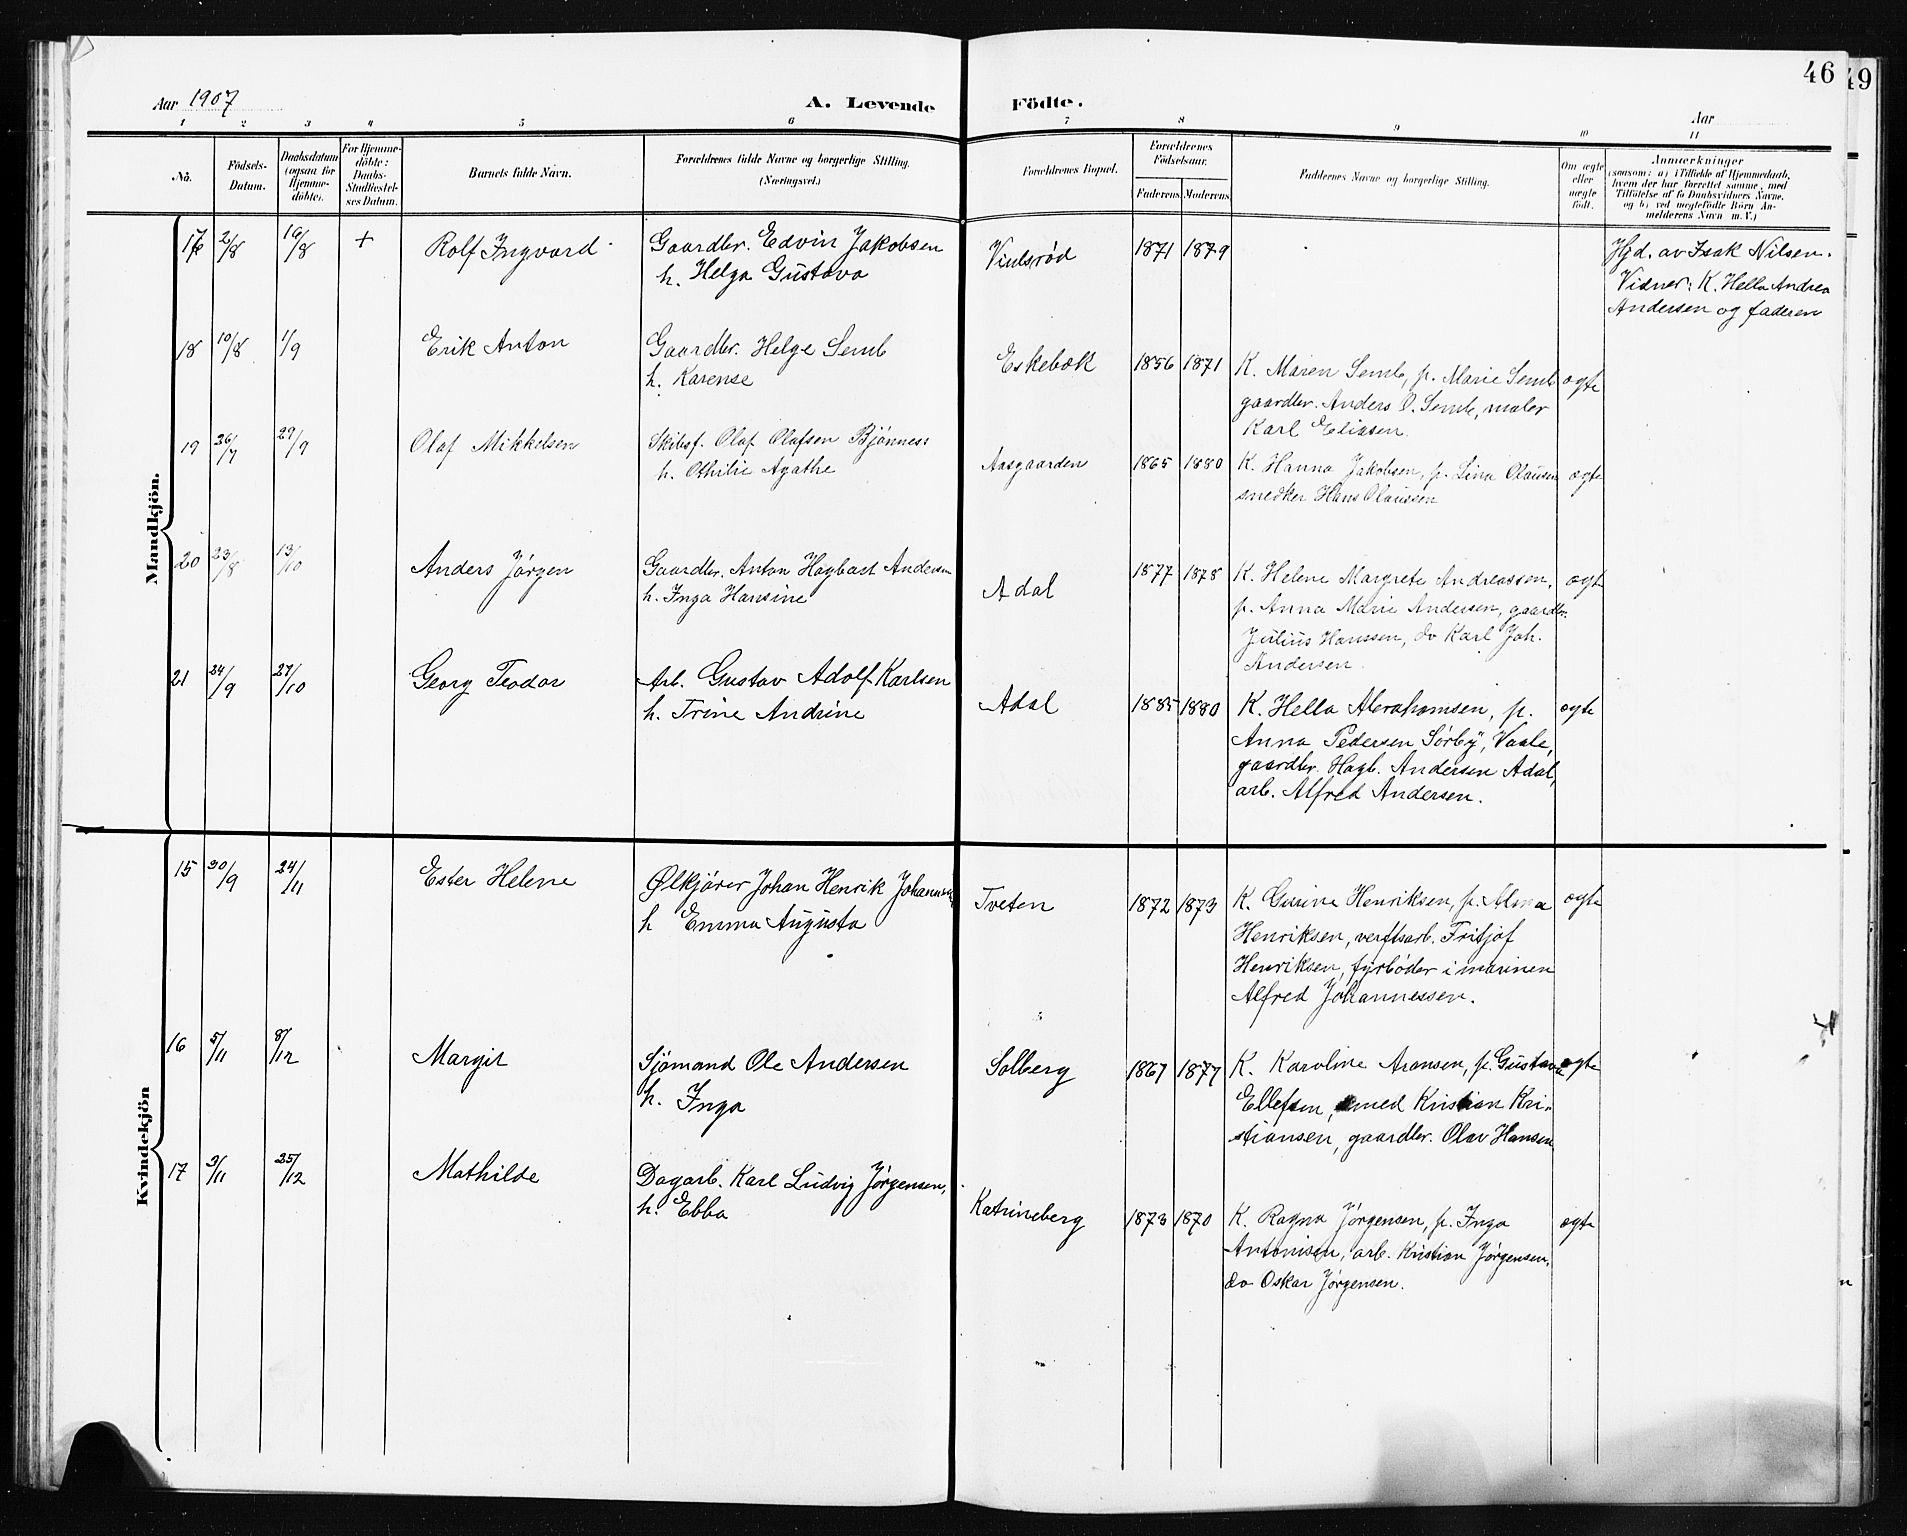 46
49
Aar 1907
A. Levende Födte.
Aar
1 2 3 4 5 6 7 8 9 10 11
No.
Födsels-
Datum.
Daabsdatum
(ogsaa for
Hjemme-
döbte).
For Hjemme-
döbte:
Daabs-
Stadfæstel-
ses Datum.
Barnets fulde Navn.
Forældrenes fulde Navne og borgerlige Stilling.
(Næringsvei.)
Forældrenes Bopæl.
Forældrenes
Födselsaar.
Faderens Moderens
Faddernes Navne og borgerlige Stilling.
Om ægte
eller
uægte
født.
Anmærkninger
(saasom: a) i Tilfælde af Hjemmedaab,
hvem der har forrettet samme, med
Tilföielse af to Daabsvidners Navne,
og b) ved uegtefödte Börn An-
melderens Navn m. V.)
Mandkjön.
17 2/8 16/8 + Rolf Ingvard Gaardbr. Edvin Jakobsen
h. Helga Gustava
Vinlsrød 1871 1879
Hjd. av Isak Nilsen.
Vidner: K. Hella Andrea
Andersen og faderen
18 10/8 1/9 Erik Anton Gaardbr. Helge Semb
h. Karense
Eskebæk 1856 1871 K. Maren Semb, p. Marie Semb ægte
gaardbr. Anders O. Semb, maler
Karl Eliasen.
19 26/7 29/9 Olaf Mikkelsen Skibsf. Olaf Olafsen Bjønness
h. Othilie Agathe
Aasgaarden 1865 1880 K. Hanna Jakobsen, p. Lina Olausen ægte
snedker Hans Olaussen
20 23/8 13/10 Anders Jørgen Gaardbr. Anton Hagbart Andersen
h. Inga Hansine
Adal 1877 1878 K. Helene Margrete Andreassen, ægte
p. Anna Marie Andersen, gaardbr.
Julius Hanssen, do Karl Joh.
Andersen.
21 24/9 27/10 Georg Teodor Arb. Gustav Adolf Karlsen
h. Trine Andrine
Adal 1885 1880 K. Hella Abrahamsen, p. ægte
Anna Pedersen Sørby, Vaale,
gaardbr. Hagb. Andersen Adal,
arb. Alfred Andersen.
Kvindekjön
15 30/9 24/11 Ester Helene Ølkjører Johan Henrik Johannsen,
h Emma Augusta
Tveten 1872 1873 K. Gurine Henriksen, p. Alma ægte
Henriksen, verftsarb. Fritjof
Henriksen, fyrbøder i marinen
Alfred Johannessen.
16 5/11 8/12 Margit Sjømand Ole Andersen
h. Inga
Solberg 1867 1877 K. Karoline Aronsen, p. Gustava ægte
Ellefsen, smed Kristian Kri-
stiansen, gaardbr. Olav Hansen
17 3/11 25/12 Mathilde Dagarb. Karl Ludvig Jørgensen,
h. Ebba
Katrineberg 1873 1870 K. Ragna Jørgensen, p. Inga ægte
Antonisen, arb. Kristian Jørgensen,
do Oskar Jørgensen.